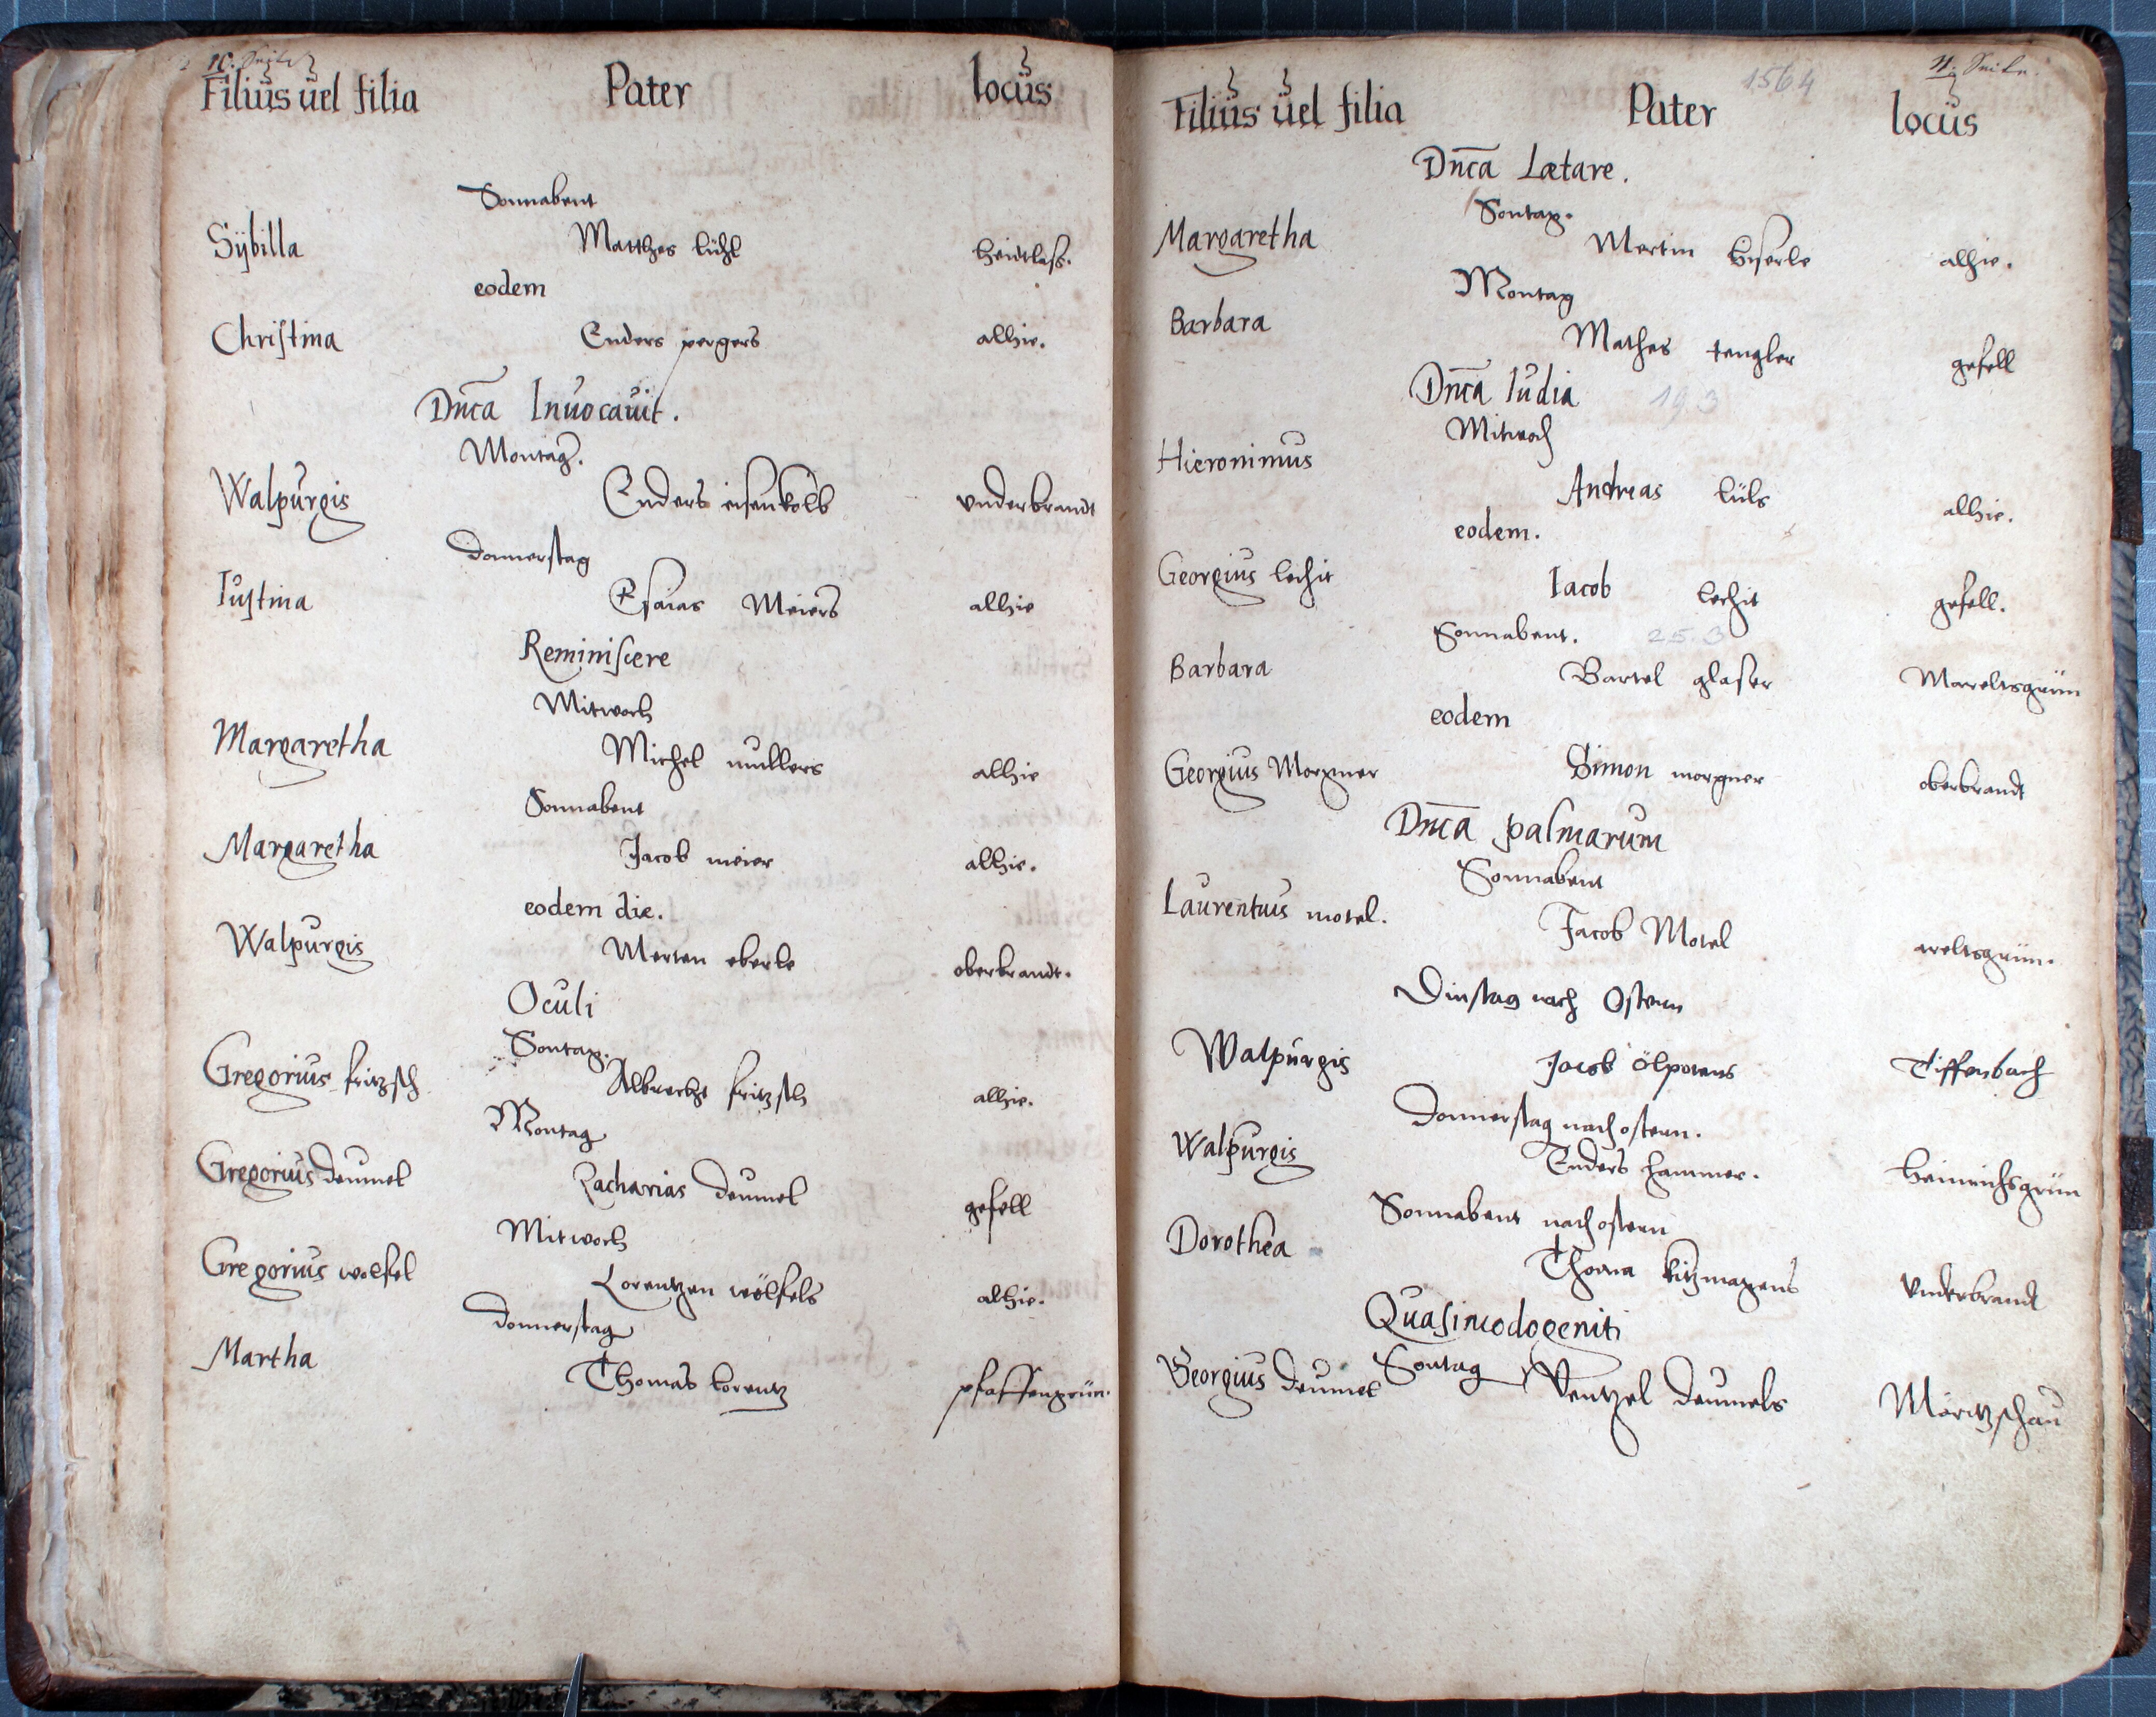 10. Seite
Filius uel filia Pater locus
Sonnabent
Sÿbilla Matthes lühl heidtless.
eodem
Christina Enders pergers alhie.
Dnca Inuocauit.
Montag.
Walpurgis Enders eisenkolb vnderbrandt
Donnerstag
Iustina Esaias Meiers alhie
Reminiscere
Mitwoch
Margaretha Michel mullers alhie
Sonnabent
Margaretha Jacob meier alhie.
eodem die.
Walpurgis Merten eberle oberbrandt.
Oculi
Sontag.
Gregorius fritzsch Albrecht fritzsch alhie.
Montag
Gregorius deumel Zacharias deumel gefell
Mitwoch
Gregorius woefel Lorentzen wölfels alhie.
donnerstag
Martha Thomas lorentz pfaffengrün.
11. Seite.
1564
Filius uel filia Pater locus
Dnca Lætare.
Sontag.
Margaretha Mertin alhie.
Montag
Barbara Mathes tengler gefell
Dnca Iudica 19 3
Mitwoch
Hieronimus Andreas lüls alhie.
eodem.
Georgius lechit Iacob lechit gefell.
Sonnabent. 25. 3
Barbara Bartel glaser Mareltsgrün
eodem
Georgius Morgner Simon morgner oberbrandt
Dnca palmarum
Sonnabent
Laurentius motel. Jacob Motel areltsgrün.
Dinstag nach Ostern
Walpurgis Jacob ölpoters Tiffenbach
Donnerstag nach ostern.
Walpurgis Enders hammer. heinrichsgrün
Sonnabent nach ostern
Dorothea Thoma kitzmagens Vnderbrandt
Quasimodogeniti
Georgius deumel Sontag Ventzel deumels Moritzschau